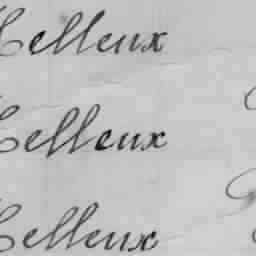 Helleux
Helleux
Helleux